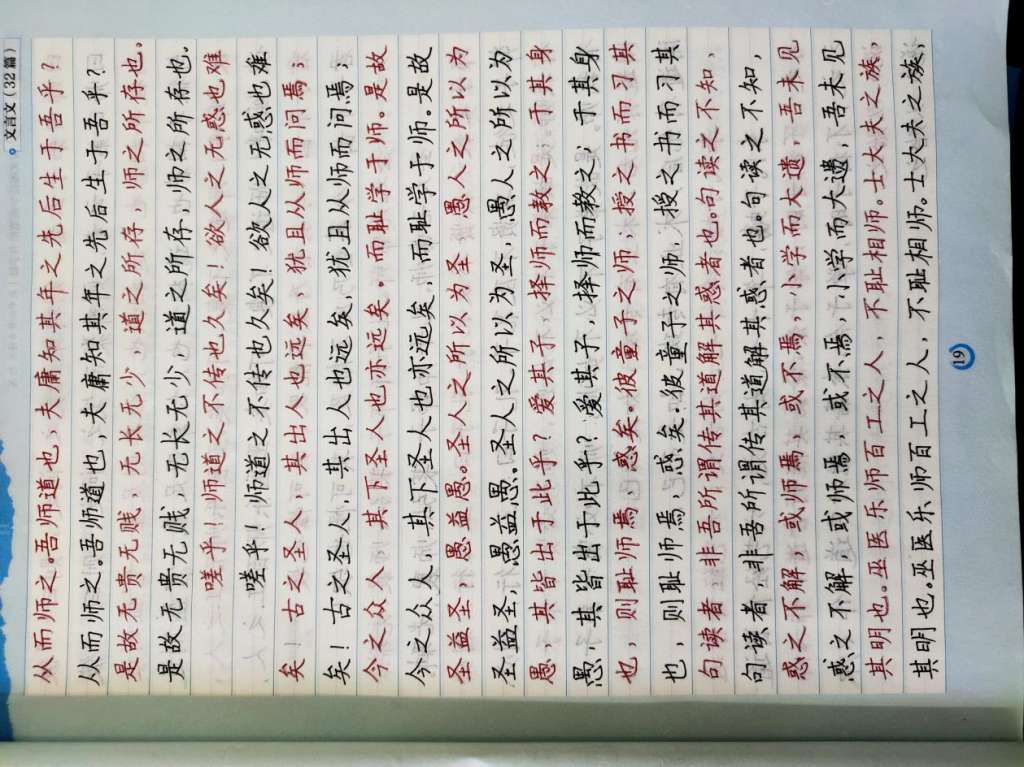 文言文（32篇）
从而师之。吾师道也，夫庸知其年之先后生于吾乎？
从而师之。吾师道也，夫庸知其年之先后生于吾乎？
是故无贵无贱，无长无少，道之所存，师之所存也。
是故无贵无贱，无长无少，道之所存，师之所存也。
嗟乎！师道之不传也久矣！欲人之无惑也难
嗟乎！师道之不传也久矣！欲人之无惑也难
矣！古之圣人，其出人也远矣，犹且从师而问焉；
矣！古之圣人，其出人也远矣，犹且从师而问焉；
今之众人，其下圣人也亦远矣。而耻学于师。是故
今之众人，其下圣人也亦远矣，而耻学于师。是故
圣益圣，愚益愚。圣人之所以为圣，愚人之所以为
圣益圣，愚益愚。圣人之所以为圣，愚人之所以为
愚，其皆出于此乎？爱其子，择师而教之；于其身
愚，其皆出于此乎？爱其子，择师而教之；于其身
也，则耻师焉，惑矣。彼童子之师，授之书而习其
也，则耻师焉，惑矣。彼童子之师，授之书而习其
句读者，非吾所谓传其道解其惑者也。句读之不知，
句读者，非吾所谓传其道解其惑者也。句读之不知，
惑之不解，或师焉，或不焉，小学而大遗，吾未见
惑之不解，或师焉，或不焉，小学而大遗，吾未见
其明也。巫医乐师百工之人，不耻相师。士大夫之族，
其明也。巫医乐师百工之人，不耻相师。士大夫之族，
19